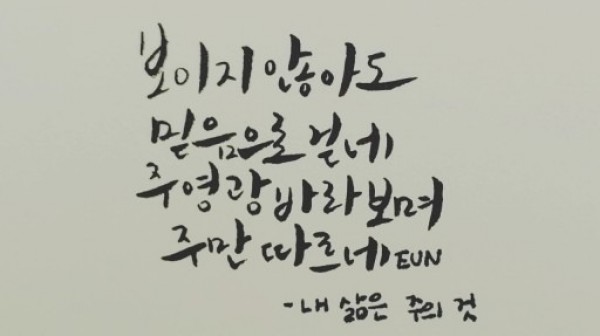 보이지 않아도
믿음으로 걷네
주 영광 바라보며
주만 따르네 EUN
- 내 삶은 주의 것